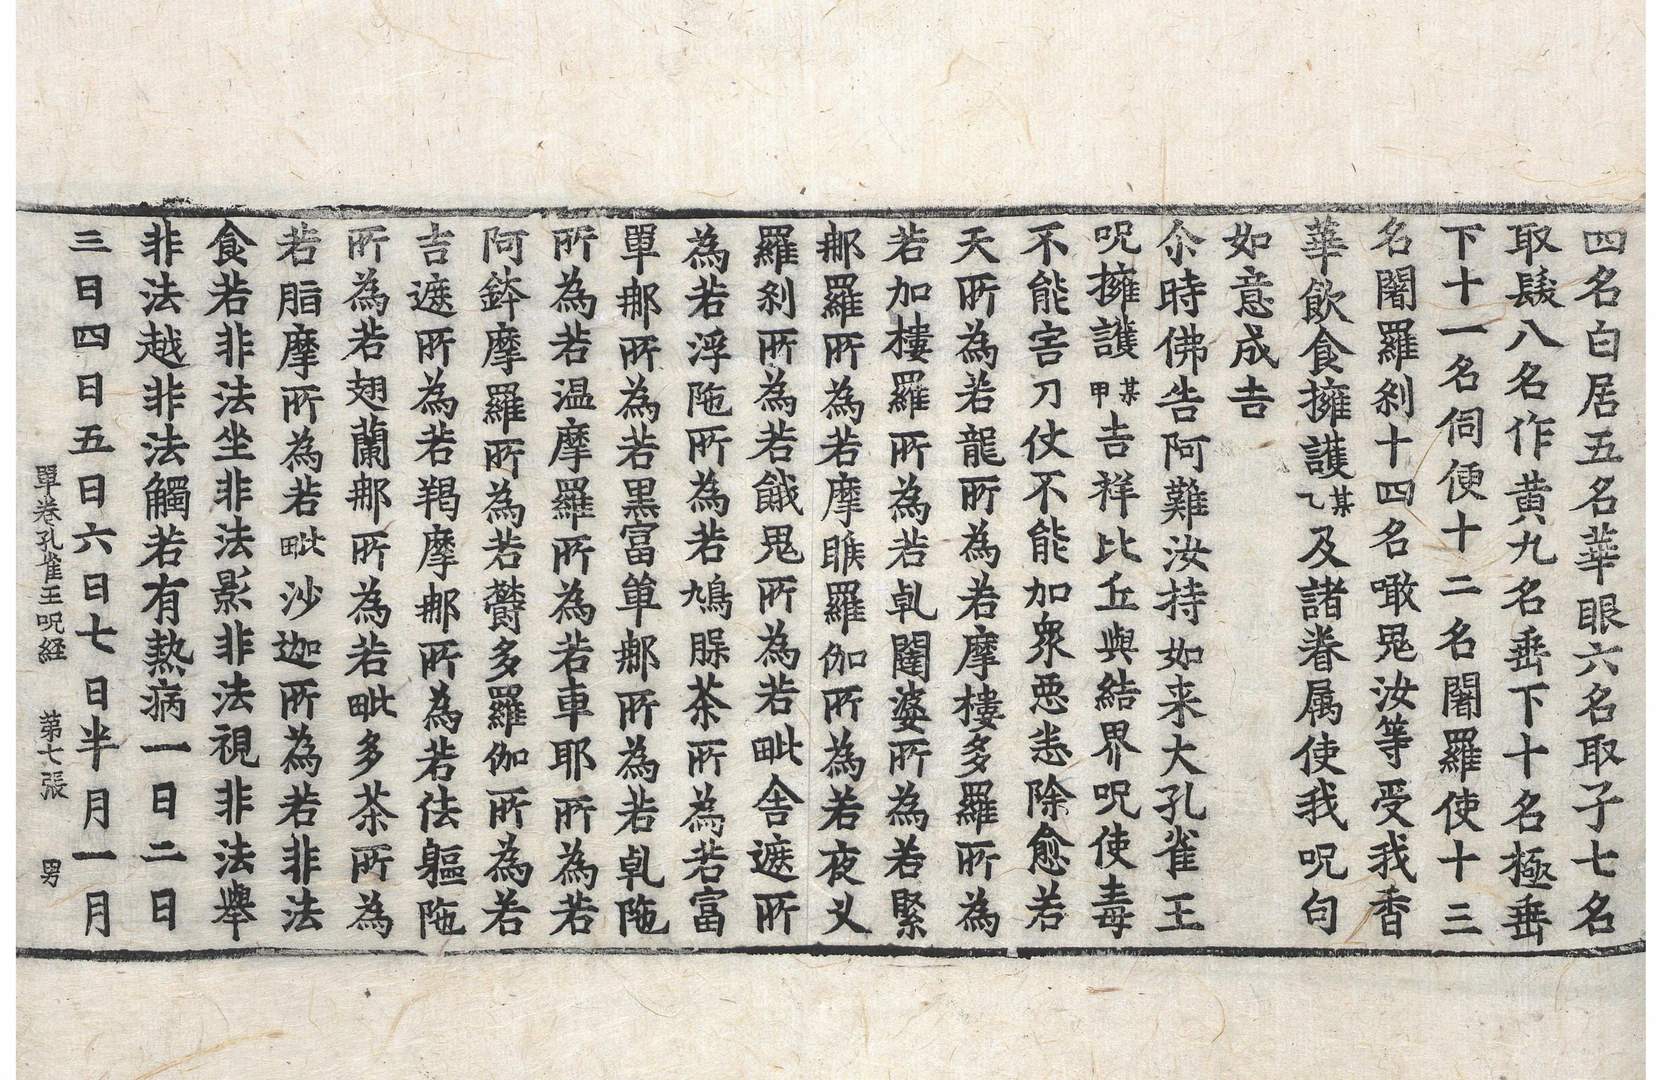 四名白居五名華眼六名取子七名
取髮八名作黄九名垂下十名極垂
下十一名伺便十二名闍羅使十三
名闍羅刹十四名噉鬼汝等受我香
華飲食擁護某乙及諸眷属使我呪句
如意成吉
尒時佛告阿難汝持如来大孔雀王
呪擁護某甲吉祥比丘與結界呪使毒
不能害刀仗不能加衆惡悉除愈若
天所為若龍所為若摩樓多羅所為
若加樓羅所為若乹闥婆所為若緊
那羅所為若摩睺羅伽所為若夜乂
羅刹所為若餓鬼所為若毗舍遮所
為若浮陁所為若鳩腺茶所為若富
單那所為若黒富單那所為若乹陁
所為若温摩羅所為若車耶所為若
阿鉢摩羅所為若欝多羅伽所為若
吉遮所為若羯摩那所為若佉軀陁
所為若翅蘭那所為若毗多茶所為
若脂摩所為若毗沙迦所為若非法
食若非法坐非法影非法視非法舉
非法越非法觸若有熱病一日二日
三日四日五日六日七日半月一月
單卷孔雀王呪経 第七張 男